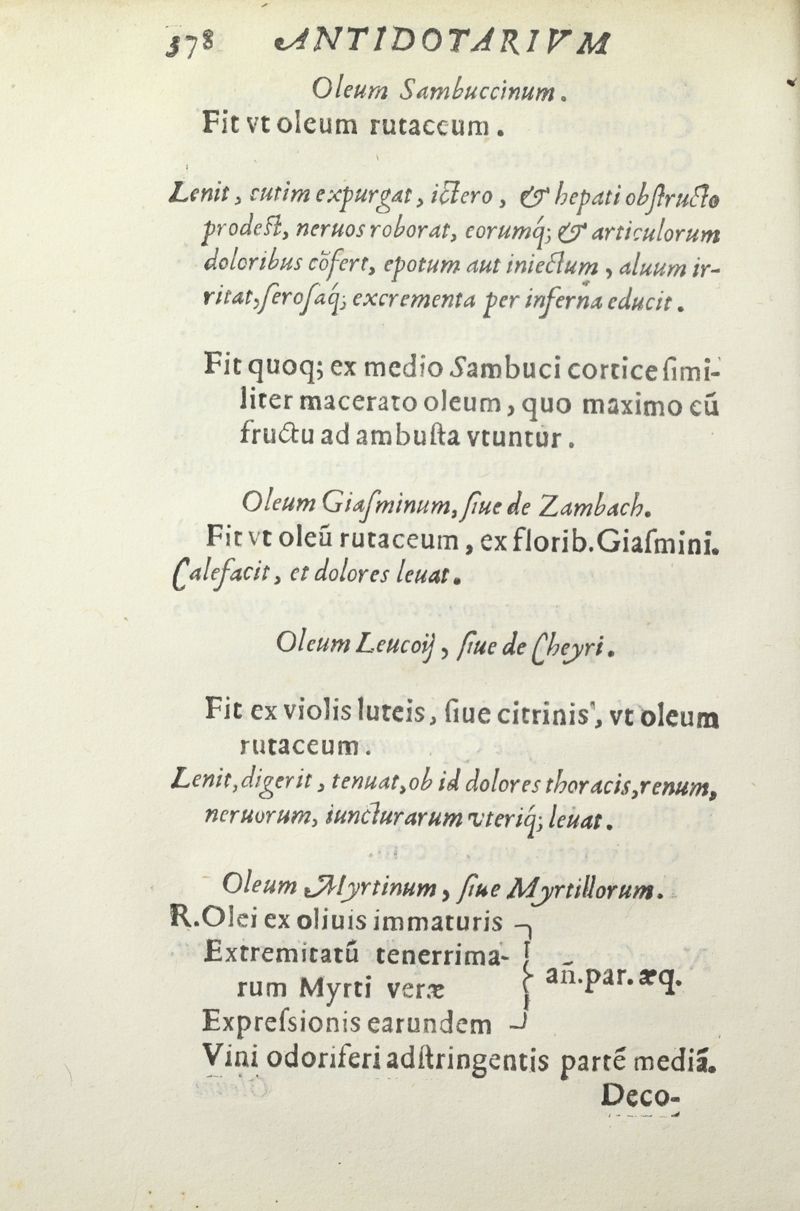 378 ANTIDOTARIVM
Oleum Sambuccinum.
Fit vt oleum rutaceum.
Lenit, cutim expurgat, ictero, & hepati obſtructo
prodeſt, neruos roborat, eorumq́; & articulorum
doloribus cōfert, epotum aut iniectum, aluum ir-
ritat, ſeroſaq́; excrementa per inferna educit.
Fit quoq; ex medio Sambuci cortice ſimi-
liter macerato oleum, quo maximo cū
fructu ad ambuſta vtuntur.
Oleum Giaſminum, ſiue de Zambach.
Fit vt oleū rutaceum, ex florib. Giaſmini.
Calefacit, et dolores leuat.
Oleum Leucoij, ſiue de Cheyri.
Fit ex violis luteis, ſiue citrinis, vt oleum
rutaceum.
Lenit, digerit, tenuat, ob id dolores thoracis, renum,
neruorum, iuncturarum vteriq́; leuat.
Oleum Myrtinum, ſiue Myrtillorum.
R. Olei ex oliuis immaturis
Extremitatū tenerrima-
rum Myrti veræ
an̄. par. æq.
Expreſsionis earundem
Vini odoriferi adſtringentis partē mediā.
Deco-